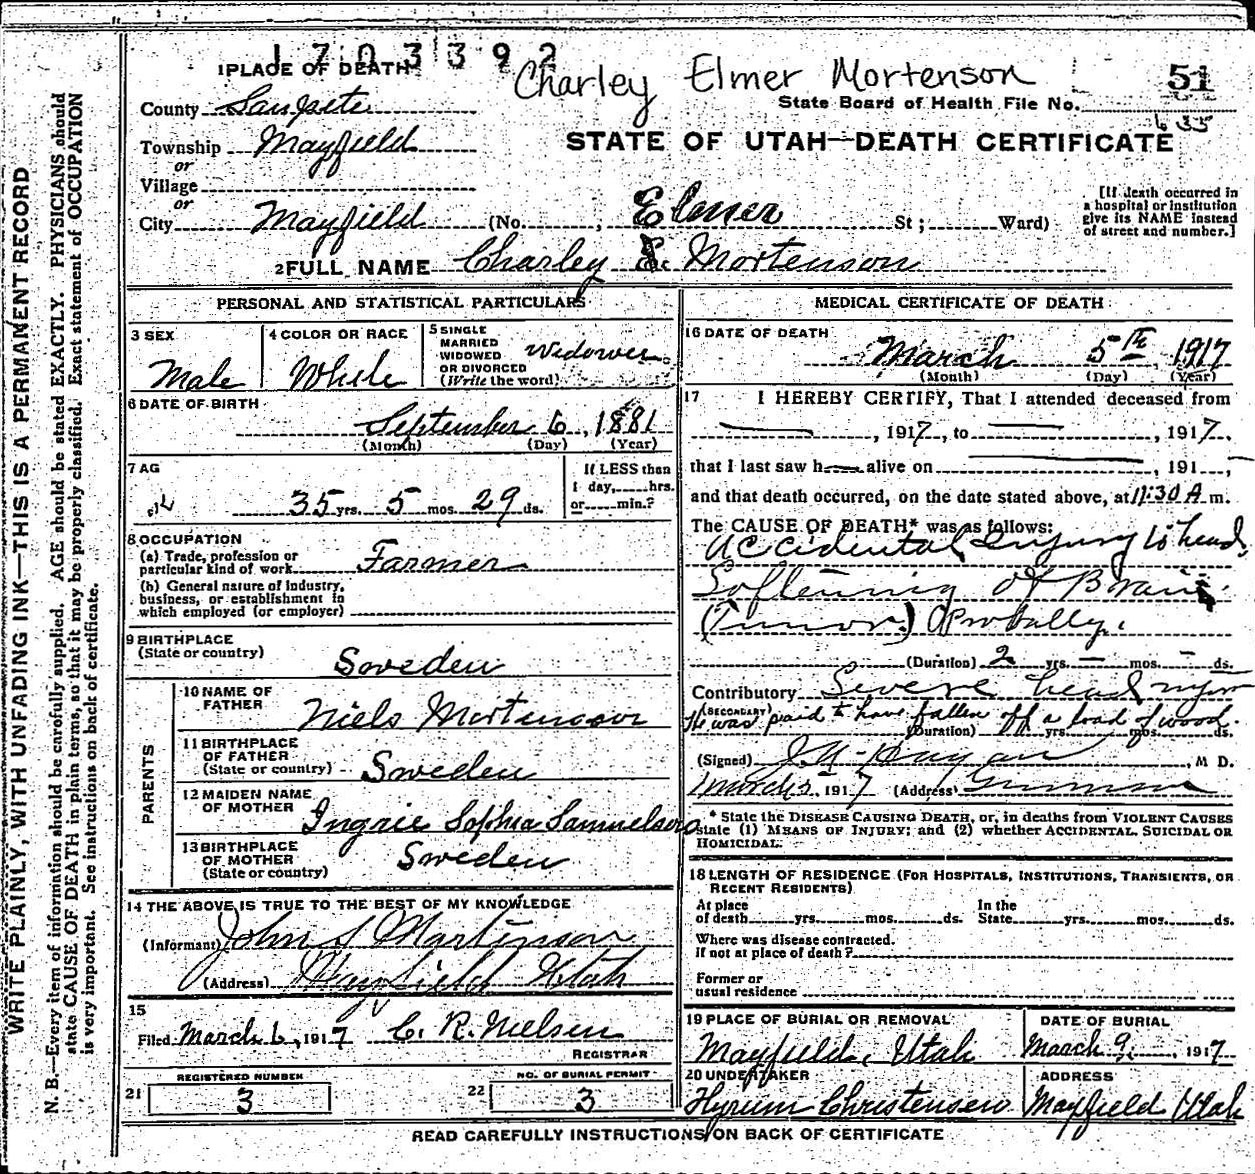 1703392
Charley Elmer Mortenson
51
1 PLACE OF DEATH
State Board of Health File No.
635
County Sanpete
STATE OF UTAH—DEATH CERTIFICATE
Township Mayfield
or
Village
or
City Mayfield (No. , Elmer St ; Ward)
[If death occurred in
a hospital or institution
give its NAME instead
of street and number.]
2 FULL NAME Charley E. Mortenson
PERSONAL AND STATISTICAL PARTICULARS
3 SEX
Male
4 COLOR OR RACE
White
5 SINGLE
MARRIED
WIDOWED
OR DIVORCED
(Write the word)
Widower
6 DATE OF BIRTH
September 6, 1881
(Month) (Day) (Year)
7 AG
35 yrs. 5 mos. 29 ds.
If LESS than
1 day, hrs.
or min.?
8 OCCUPATION
(a) Trade, profession or
particular kind of work Farmer
(b) General nature of industry,
business, or establishment in
which employed (or employer)
9 BIRTHPLACE
(State or country)
Sweden
PARENTS
10 NAME OF
FATHER
Niels Mortensson
11 BIRTHPLACE
OF FATHER
(State or country) Sweden
12 MAIDEN NAME
OF MOTHER
Ingrie Sophia Samuelson
13 BIRTHPLACE
OF MOTHER
(State or country)
Sweden
14 THE ABOVE IS TRUE TO THE BEST OF MY KNOWLEDGE
(Informant) John S Martinson
(Address) Mayfield Utah
15
Filed March 6, 1917 C. R. Nielsen
REGISTRAR
REGISTERED NUMBER
21 3
NO. OF BURIAL PERMIT
22 3
MEDICAL CERTIFICATE OF DEATH
16 DATE OF DEATH
March 5th, 1917
(Month) (Day) (Year)
17 I HEREBY CERTIFY, That I attended deceased from
, 1917, to , 1917.
that I last saw h alive on , 191 ,
and that death occurred, on the date stated above, at 11:30 A m.
The CAUSE OF DEATH* was as follows:
Accidental Injury to head,
Softening of Brain.
(Tumor) Probally.
(Duration) 2 yrs. — mos. — ds.
Contributory Severe head
(SECONDARY)
He was said to have fallen off a load of wood.
(Duration) yrs. mos. ds.
(Signed) , M D.
March 5, 1917 (Address)
* State the DISEASE CAUSING DEATH, or, in deaths from VIOLENT CAUSES
state (1) MEANS OF INJURY; and (2) whether ACCIDENTAL, SUICIDAL OR
HOMICIDAL.
18 LENGTH OF RESIDENCE (FOR HOSPITALS, INSTITUTIONS, TRANSIENTS, OR
RECENT RESIDENTS)
At place
of death yrs. mos. ds.
In the
State yrs. mos. ds.
Where was disease contracted.
if not at place of death?
Former or
usual residence
19 PLACE OF BURIAL OR REMOVAL
Mayfield, Utah
DATE OF BURIAL
March 9, 1917
20 UNDERTAKER
Hyrum Christensen
ADDRESS
Mayfield Utah
READ CAREFULLY INSTRUCTIONS ON BACK OF CERTIFICATE
WRITE PLAINLY, WITH UNFADING INK—THIS IS A PERMANENT RECORD
N. B.—Every item of information should be carefully supplied. AGE should be stated EXACTLY. PHYSICIANS should
state CAUSE OF DEATH in plain terms, so that it may be properly classified. Exact statement of OCCUPATION
is very important. See instructions on back of certificate.